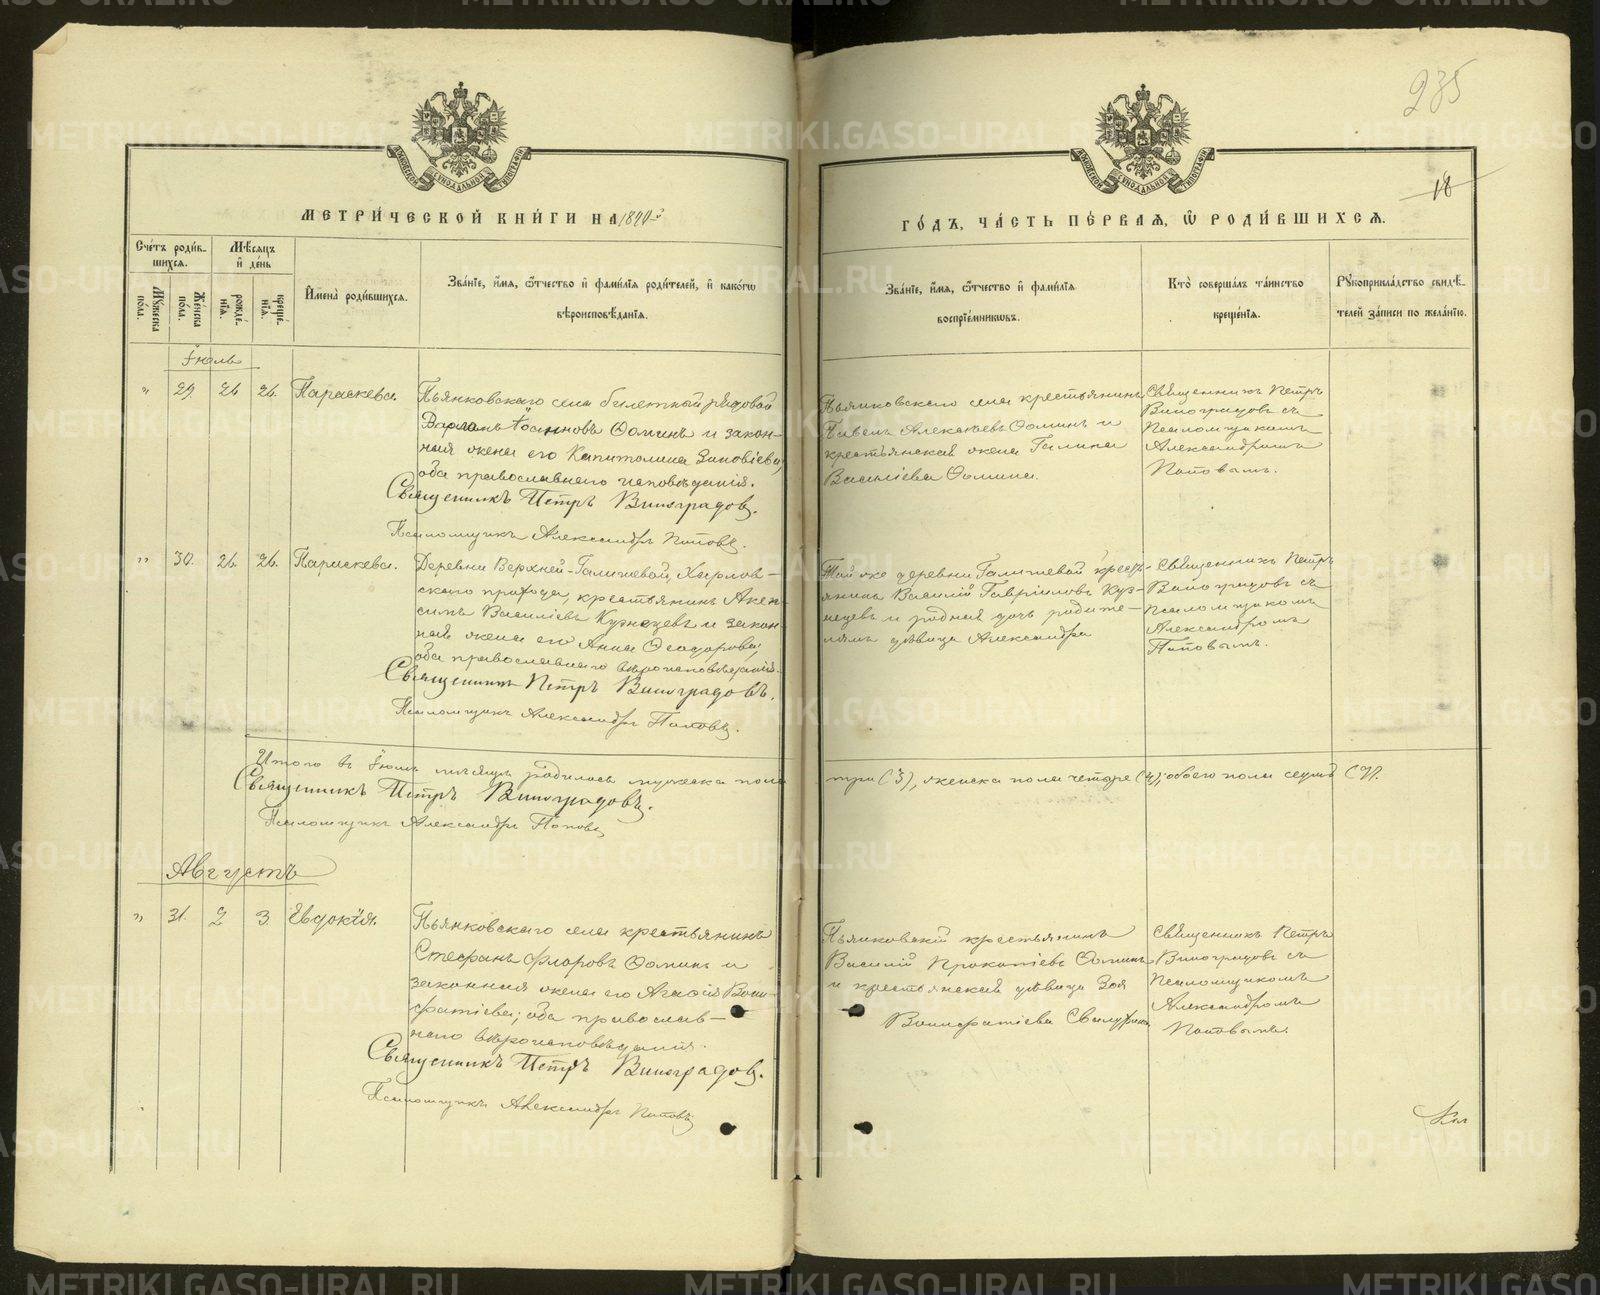 235
18
МЕТРИ́ЧЕСКОЙ КНИ́ГИ НА 1890й
ГО́ДЪ, ЧА́СТЬ ПЕ́РВАѦ, Ѽ РОДИ́ВШИХСѦ.
Сче́тъ роди́в-
шихсѧ.
Мꙋ́жеска по́ла.
Же́нска по́ла.
Мѣ́сѧцъ
и҆ де́нь
рожде́-
нїѧ.
креще́-
нїѧ.
И҆мена̀ роди́вшихсѧ.
Зва́нїе, и҆́мѧ, ѻ҆́тчество и҆ фами́лїѧ роди́телей, и҆ како́гѡ
вѣроисповѣ́данїѧ.
Зва́нїе, и҆́мѧ, ѻ҆́тчество и҆ фами́лїѧ
воспрїе́мникѡвъ.
Кто̀ соверша́лъ та́инство
креще́нїѧ.
Рꙋкоприкла́дство свидѣ́-
телей за́писи по жела́нїю.
Іюль
" 29. 26. 26. Параскева.
Пьянковскаго села билетный рядовой
Варлаамъ Іоанновъ Ѳоминъ и закон-
ная жена его Капитолина Зиновіева,
оба православнаго исповѣданія.
Священникъ Петръ Виноградовъ.
Псаломщикъ Александръ Поповъ.
Пьянковскаго села крестьянинъ
Павелъ Алексѣевъ Ѳоминъ и
крестьянская жена Галина
Васильева Ѳомина.
Священникъ Петръ
Виноградовъ съ
Псаломщикомъ
Александромъ
Поповымъ.
" 30. 26. 26. Параскева.
Деревни Верхней-Галишевой, Харлов-
скаго прихода, крестьянинъ Алек-
сѣй Васильевъ Кузнецевъ и закон-
ная жена его Анна Ѳеодорова,
оба православнаго вѣроисповѣданія.
Священникъ Петръ Виноградовъ.
Псаломщикъ Александръ Поповъ.
Той же деревни Галишевой кресть-
янинъ Василій Гавріиловъ Куз-
нецевъ и родная дочь родите-
лямъ дѣвица Александра
Священникъ Петръ
Виноградовъ съ
Псаломщикомъ
Александромъ
Поповымъ.
Итого въ Іюлѣ мѣсяцѣ родилось мужеска пола
три (3), женска пола четыре (4), обоего пола семь (7).
Священникъ Петръ Виноградовъ.
Псаломщикъ Александръ Поповъ
Августъ
" 31. 2 3. Евдокія.
Пьянковскаго села крестьянинъ
Стефанъ Флоровъ Ѳоминъ и
законная жена его Агафія Вони-
фатіева; оба православ-
наго вѣроисповѣданія.
Священникъ Петръ Виноградовъ.
Псаломщикъ Александръ Поповъ
Пьянковскій крестьянинъ
Василій Прокопіевъ Ѳоминъ
и крестьянская дѣвица Зоя
Вонифатіева
Священникъ Петръ
Виноградовъ съ
Псаломщикомъ
Александромъ
Поповымъ.